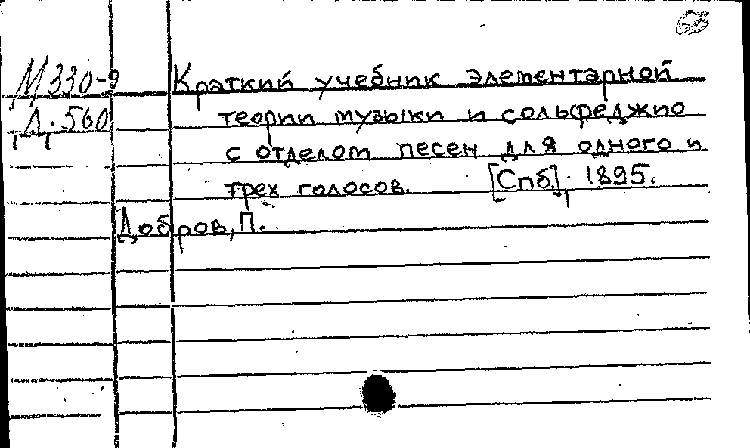 М330-9 Краткий учебник элементарной
Д.560 теории музыки и сольфеджио
с отделом песен для одного и
трех голосов. [Спб], 1895.
Добров, П.